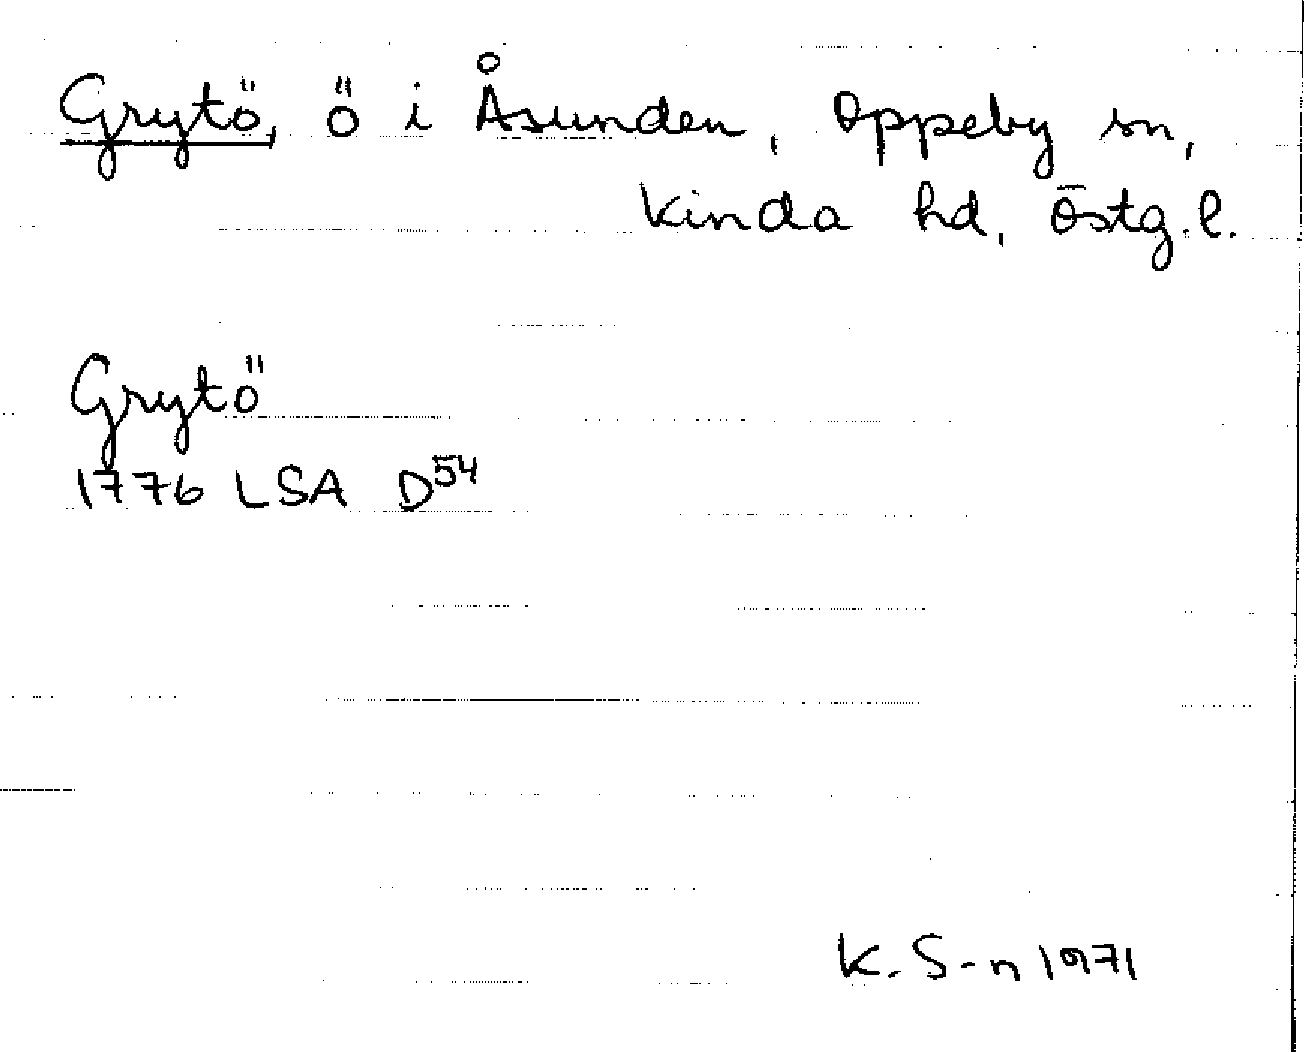 Grytö, ö i Åsunden, Oppeby sn,
Kinda hd, Östg.l.
Grytö
1776 LSA D54
K. S-n 1971